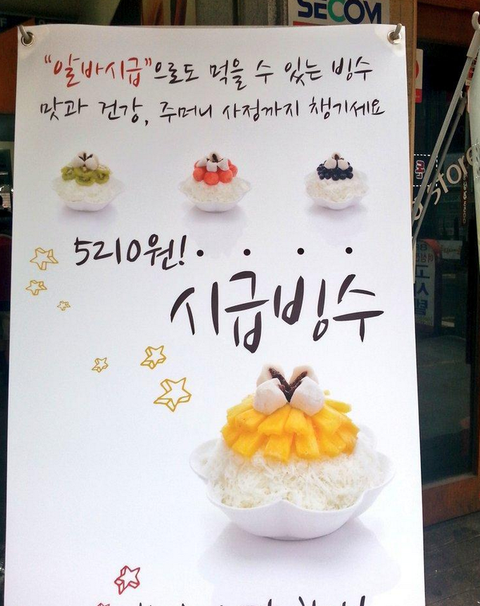 SECOM
"알바시급"으로도 먹을 수 있는 빙수
맛과 건강, 주머니 사정까지 챙기세요
store
5210원!
시급빙수